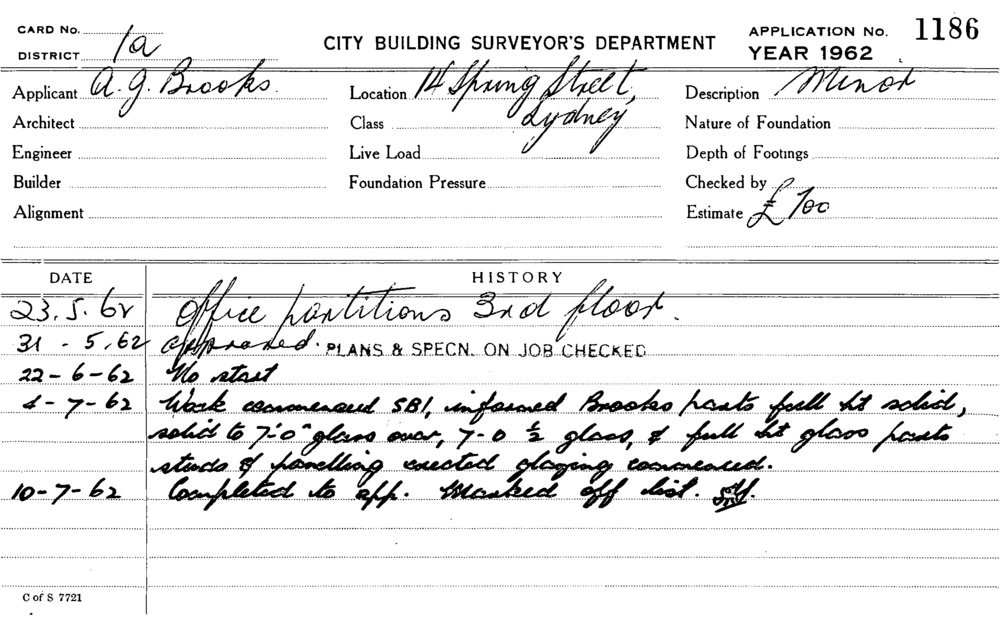 CARD No.
DISTRICT 1a
CITY BUILDING SURVEYOR'S DEPARTMENT
APPLICATION No. 1186
YEAR 1962
Applicant A. J. Brooks.
Location 14 Spring Street,
Sydney
Description Minor
Architect
Class
Nature of Foundation
Engineer
Live Load
Depth of Footings
Builder
Foundation Pressure
Checked by
Alignment
Estimate £ 700
DATE HISTORY
23.5.62 Office partitions 3rd floor.
31-5.62 approved. PLANS & SPECN. ON JOB CHECKED
22-6-62 No start
4-7-62 Work commenced SBI, informed Brooks parts full ht solid,
solid to 7'-0" glass over, 7-0 ½ glass, & full ht glass parts
studs & panelling erected glazing commenced.
10-7-62 Completed to app. Marked off list.
C of S 7721